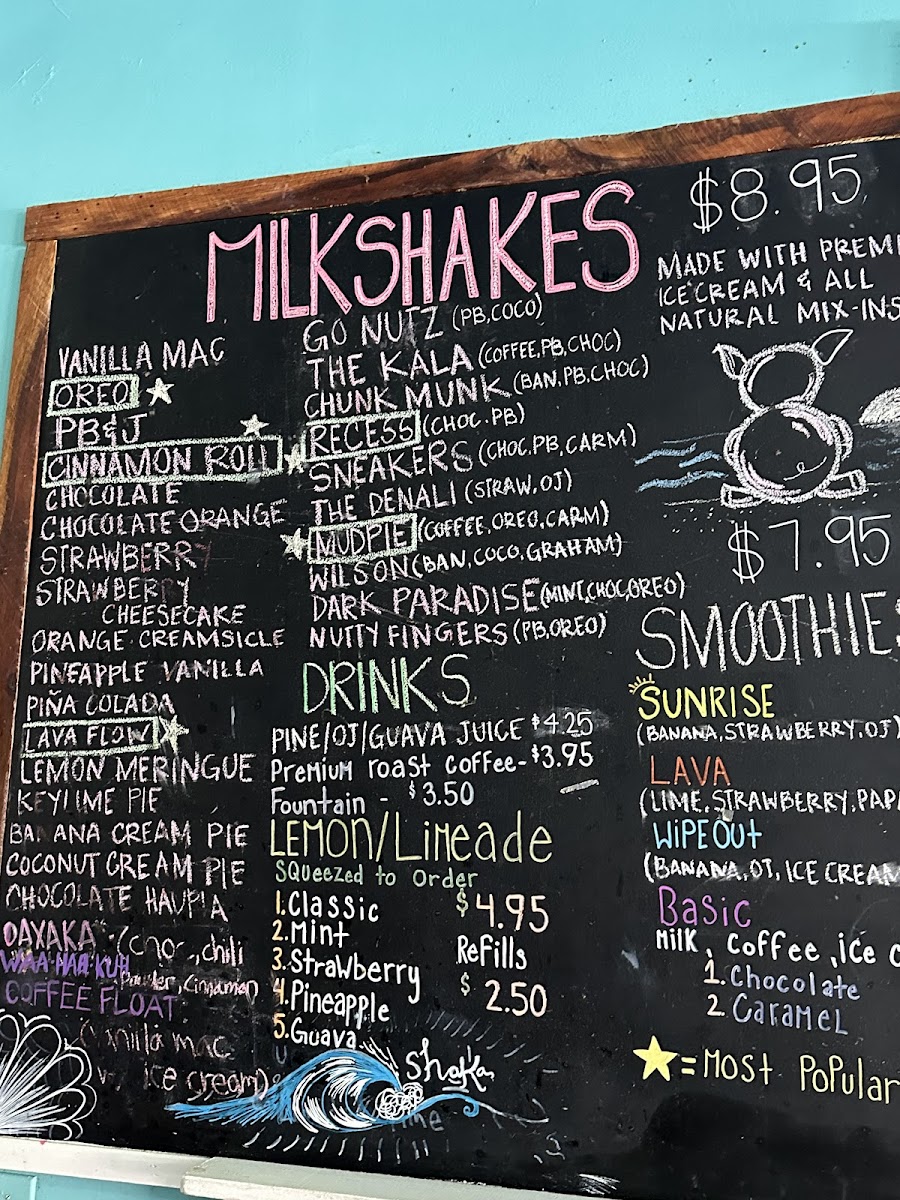 MILKSHAKES
$8.95
MADE WITH PREMI
ICE CREAM & ALL
NATURAL MIX-INS
VANILLA MAC
OREO
PB&J
CINNAMON ROLL
CHOCOLATE
CHOCOLATE ORANGE
STRAWBERRY
STRAWBERRY
CHEESECAKE
ORANGE CREAMSICLE
PINEAPPLE VANILLA
PIÑA COLADA
LAVA FLOW
LEMON MERINGUE
KEYLIME PIE
BANANA CREAM PIE
COCONUT CREAM PIE
CHOCOLATE HAUPIA
OAXAKA (choc, chili
WAA NAA KUH Powder, Cinnamon
COFFEE FLOAT
(Vanilla mac
ice cream)
GO NUTZ (PB, COCO)
THE KALA (COFFEE, PB, CHOC)
CHUNK MUNK (BAN, PB, CHOC)
RECESS (CHOC, PB)
SNEAKERS (CHOC, PB, CARM)
THE DENALI (STRAW, OJ)
MUDPIE (COFFEE, OREO, CARM)
WILSON (BAN, COCO, GRAHAM)
DARK PARADISE (MINT, CHOC, OREO)
NUTTY FINGERS (PB, OREO)
DRINKS
PINE/OJ/GUAVA JUICE $4.25
Premium roast coffee - $3.95
Fountain - $3.50
LEMON/Limeade
Squeezed to Order
1. Classic $4.95
2. Mint Refills
3. Strawberry $2.50
4. Pineapple
5. Guava
Shaka
$7.95
SMOOTHIES
SUNRISE
(BANANA, STRAWBERRY, OJ)
LAVA
(LIME, STRAWBERRY, PAPA
WIPEOUT
(BANANA, OJ, ICE CREAM
Basic
Milk, coffee, ice c
1. Chocolate
2. Caramel
= Most Popular